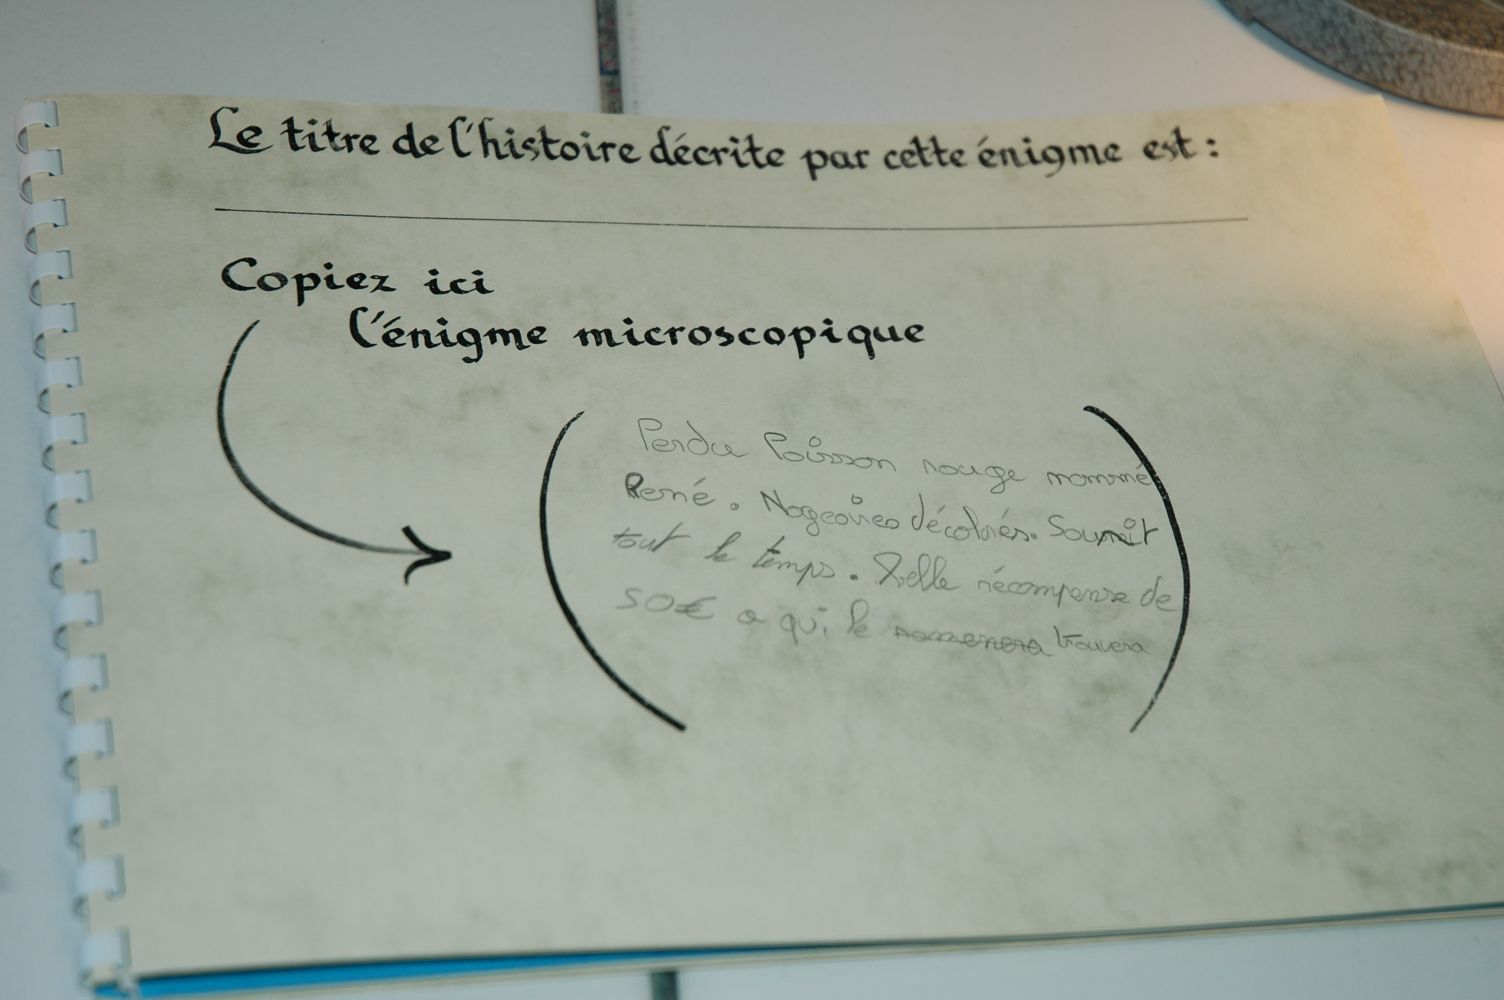 Le titre de l'histoire décrite par cette énigme est :
Copiez ici
l'énigme microscopique
Perdu Poisson rouge nommé
René. Nageoires décolorés. Sourit
tout le temps. Belle récompense de
50€ a qui le ramenera trouvera